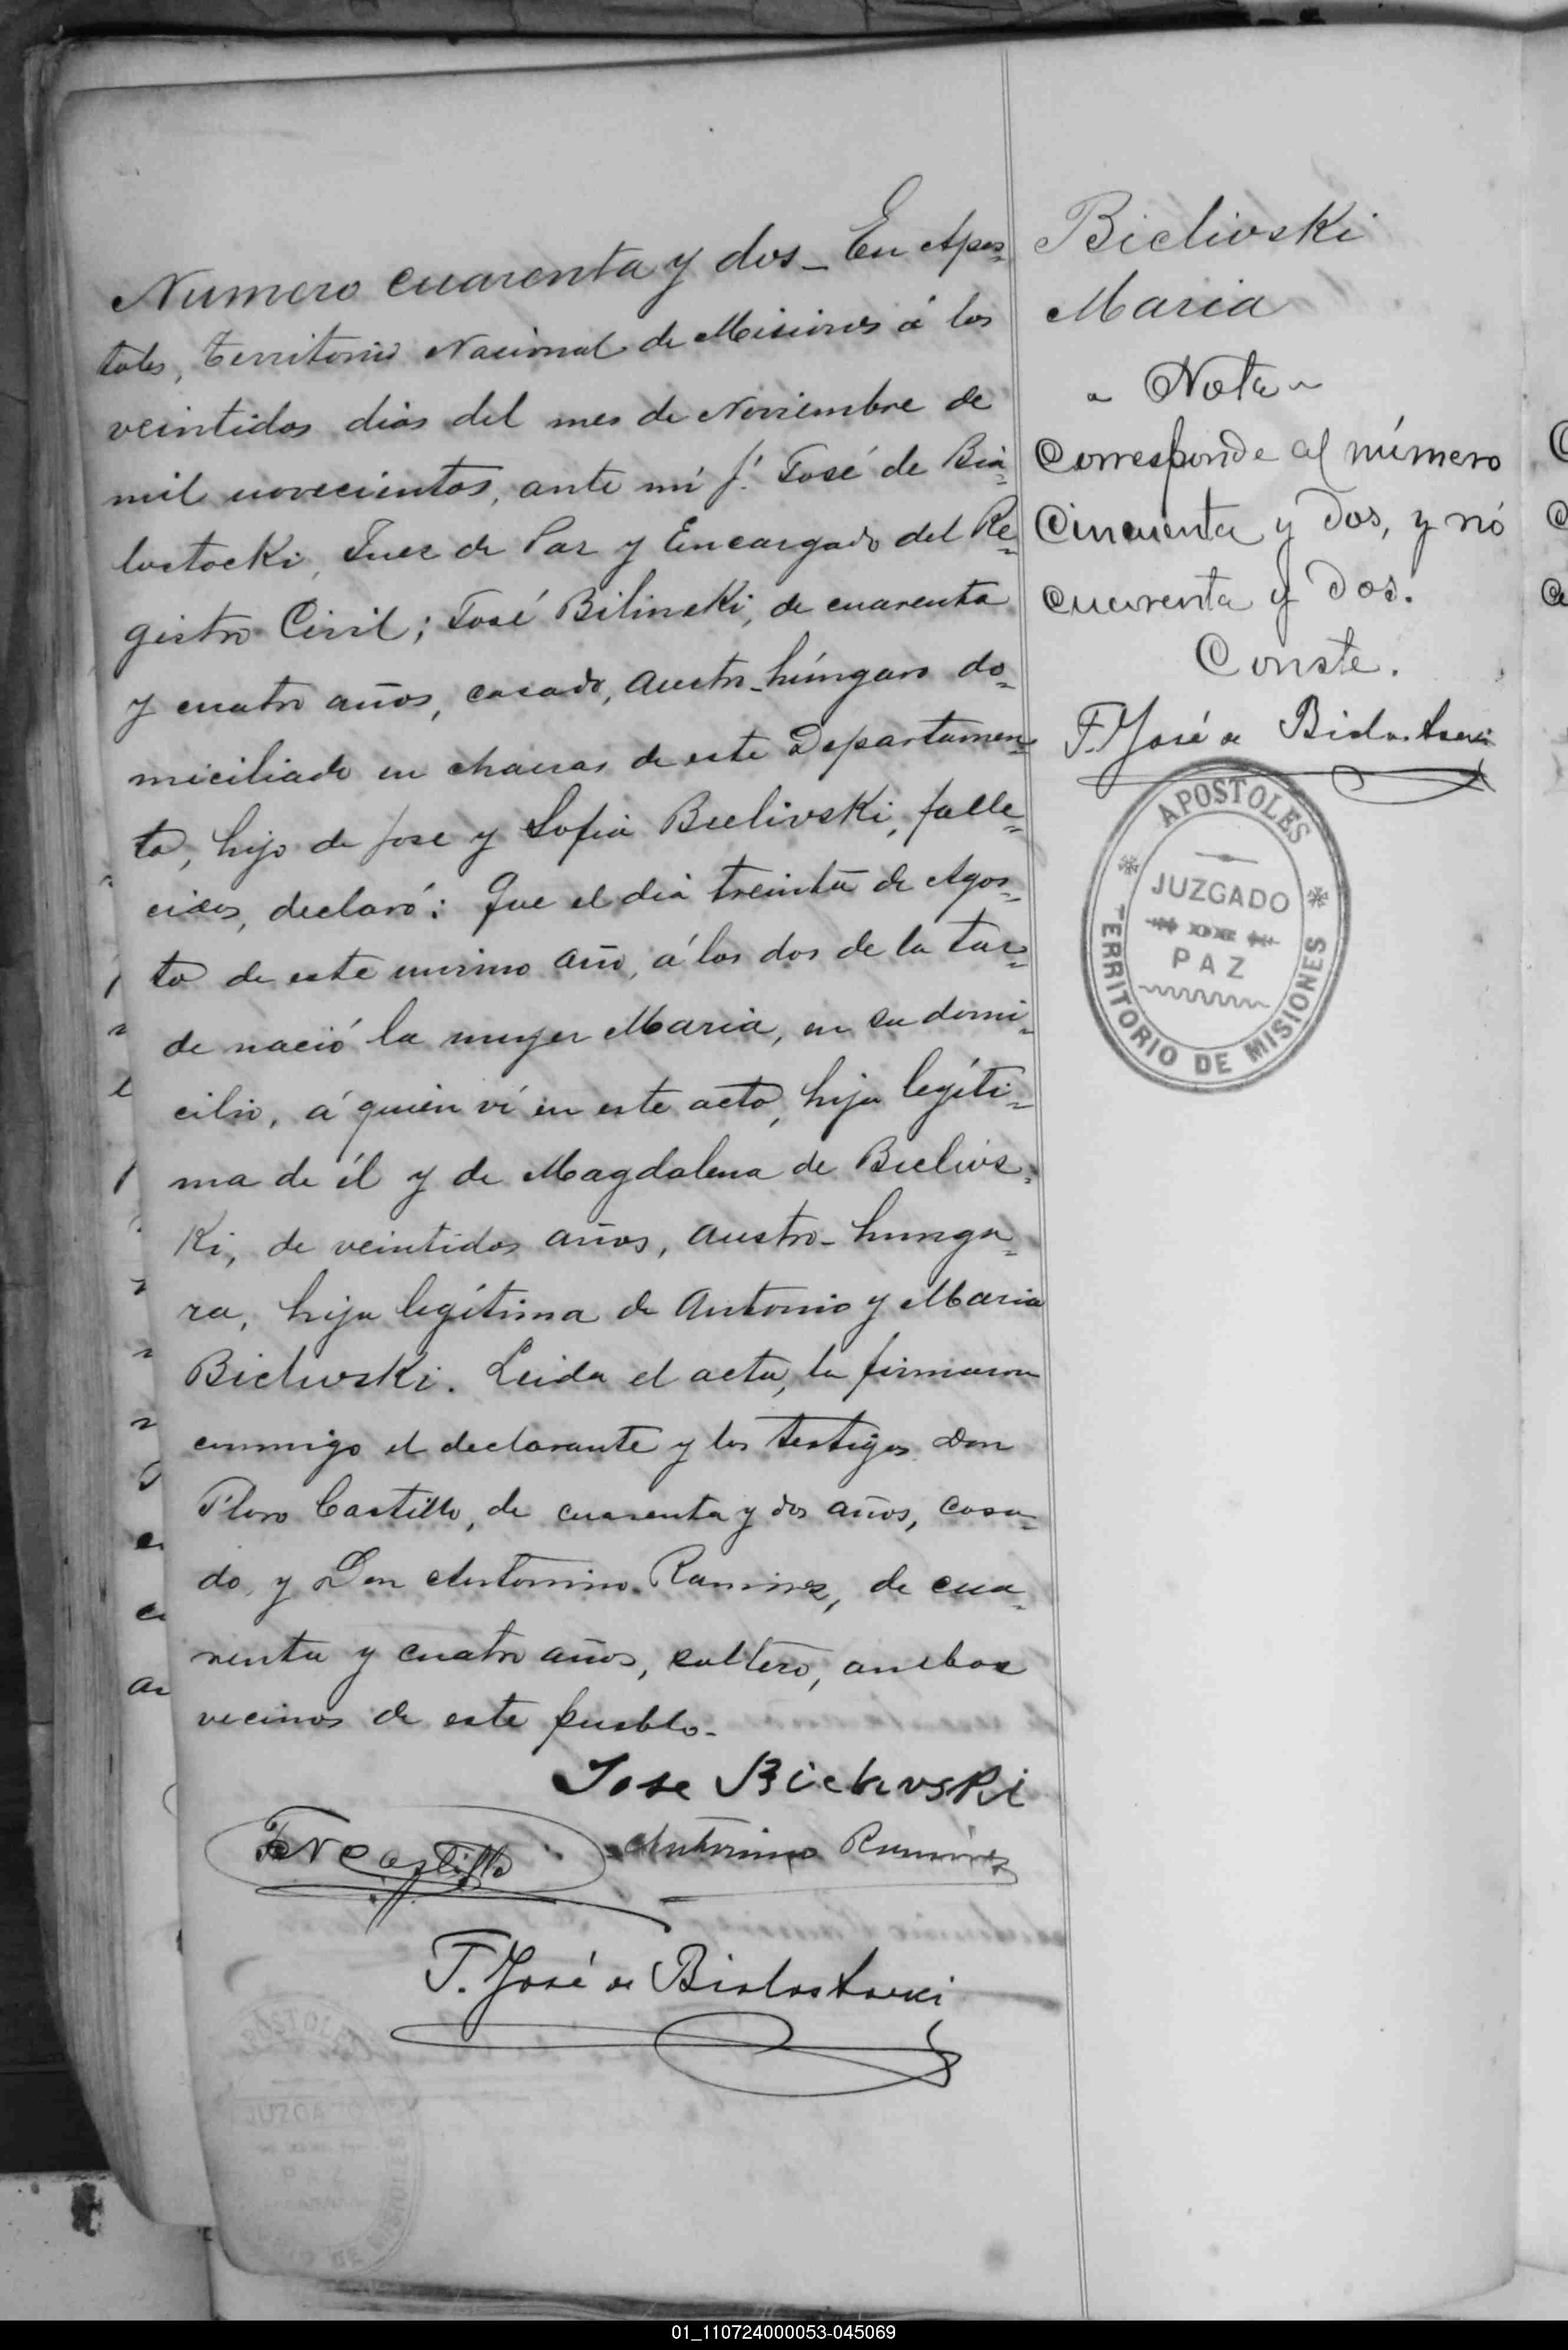 Numero cuarenta y dos_ En Apos=
toles, Territorio Nacional de Misiones á los
veintidos dias del mes de Noviembre de
mil novecientos, ante mí f. José de Bia=
lostocki, Juez de Paz y Encargado del Re=
gistro Civil; José Bilinski, de cuarenta
y cuatro años, casado, austro-húngaro do=
miciliado en chacras de este Departamen=
to, hijo de Jose y Sofia Bielivski, falle=
cidos, declaró: Que el dia treinta de Agos=
to de este mismo año, á las dos de la tar=
de nació la mujer Maria, en su domi=
cilio, á quien ví en este acto, hija legíti=
ma de él y de Magdalena de Bielivs=
ki, de veintidos años, austro-hunga=
ra, hija legítima de Antonio y Maria
Bielivski. Leida el acta, la firmaron
conmigo el declarante y los testigos Don
Floro Castillo, de cuarenta y dos años, casa=
do, y Don Antonino Ramirez, de cua=
renta y cuatro años, soltero, ambos
vecinos de este pueblo.
Jose Bielivski
Castillo Antonino Ramirez
F. José de Bialostocki
Bielivski
Maria
- Nota -
Corresponde al número
Cincuenta y dos, y nó
cuarenta y dos.
Conste.
F. José de Bialostocki
APOSTOLES
JUZGADO
PAZ
TERRITORIO DE MISIONES
01_110724000053-045069